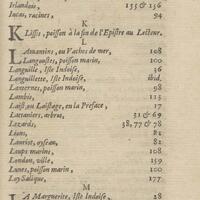 Irlandois, 155 & 156
Incas, racines, 94
K
KLissis, poisson à la fin de l'Epistre au Lecteur.
L
LAmantins, ou Vaches de mer, 108
Langoustes, poisson marin, 100
Languille, Isle Indoise, 36
Languillette, Isle Indoise, ibid.
Lanternes, poisson marin, 98
Lambis, 115
Laist, ou Laistage, en la Preface, 17
Lattaniers, arbres, 31 & 69
Lezards, 38, 77 & 78
Lions, 81
Lauriot, oyseau, 81
Loups marins, 108
London, ville, 159
Lunes, poisson marin, 100
Loy Salique, 177
M
LA Marguerite, Isle Indoise, 28